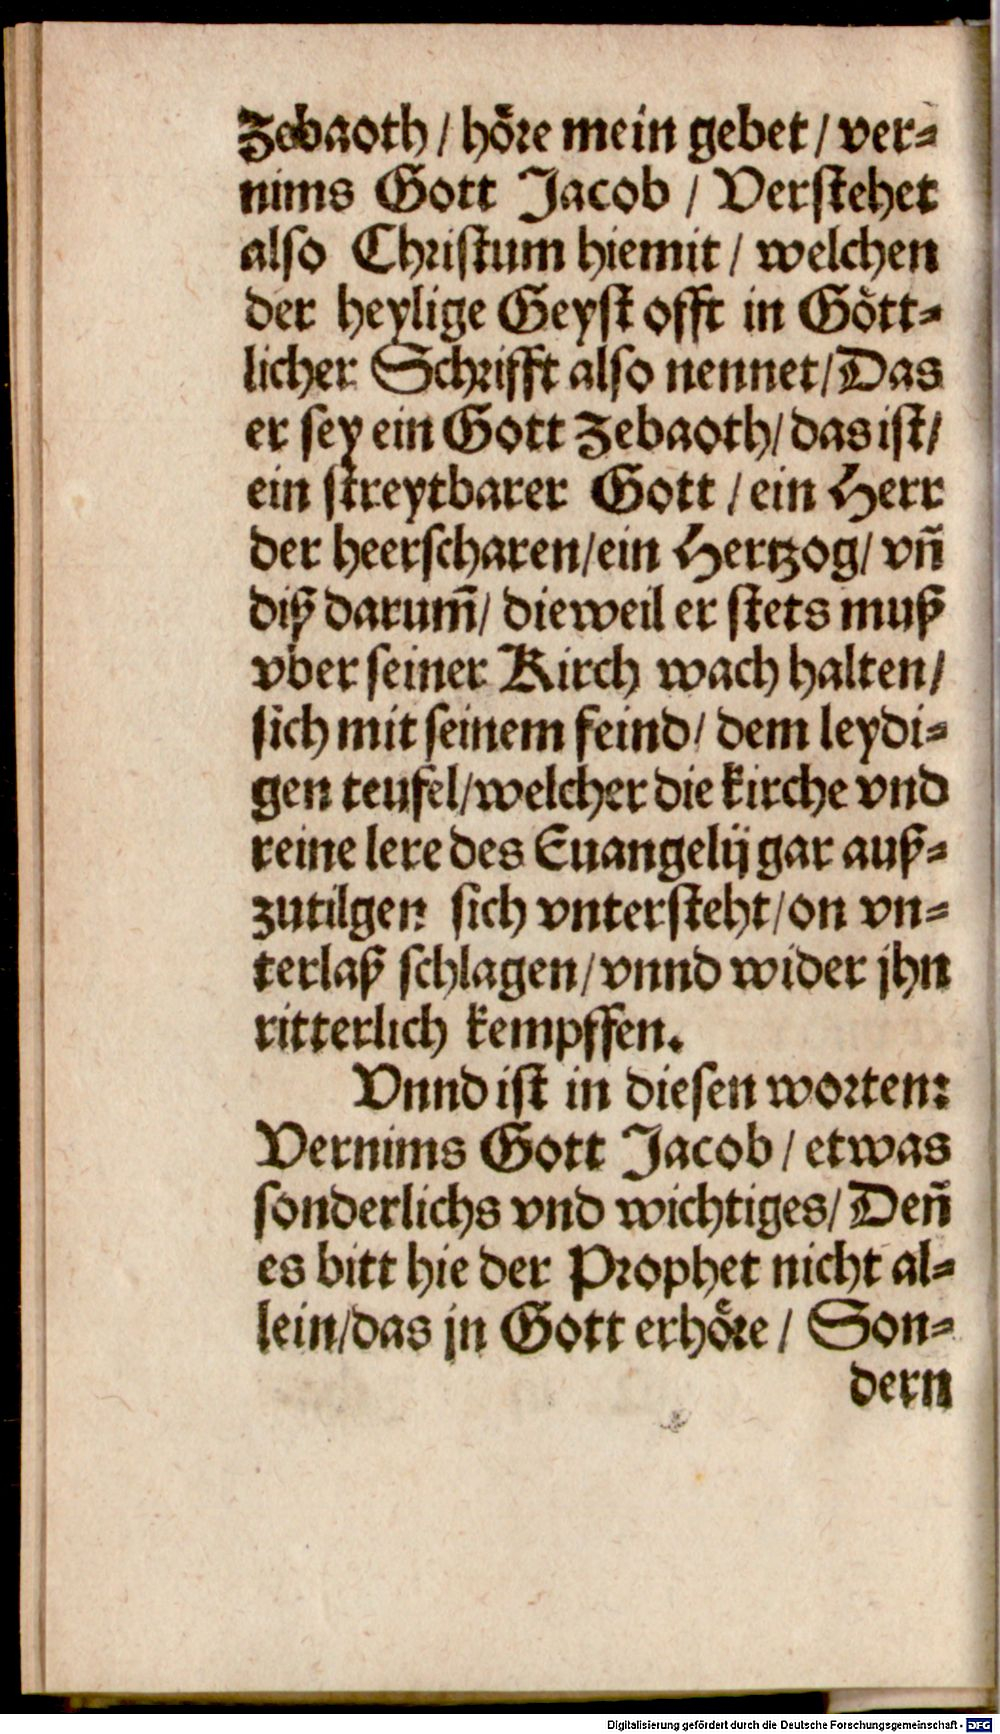 Zebaoth / hoͤre mein gebet / ver⸗
nims Gott Jacob / Verſtehet
alſo Chriſtum hiemit / welchen
der heylige Geyſt offt in Goͤtt⸗
licher Schrifft alſo nennet / Das
er ſey ein Gott Zebaoth / das iſt /
ein ſtreytbarer Gott / ein Herr
der heerſcharen / ein Hertzog / vn̄
diß darum̄ / dieweil er ſtets muß
vber ſeiner Kirch wach halten /
ſich mit ſeinem feind / dem leydi⸗
gen teufel / welcher die kirche vnd
reine lere des Euangelij gar auß⸗
zutilgen ſich vnterſteht / on vn⸗
terlaß ſchlagen / vnnd wider jhn
ritterlich kempffen.
Vnnd iſt in dieſen worten:
Vernims Gott Jacob / etwas
ſonderlichs vnd wichtiges / Den̄
es bitt hie der Prophet nicht al⸗
lein / das jn Gott erhoͤre / Son⸗
dern
Digitalisierung gefördert durch die Deutsche Forschungsgemeinschaft - DFG